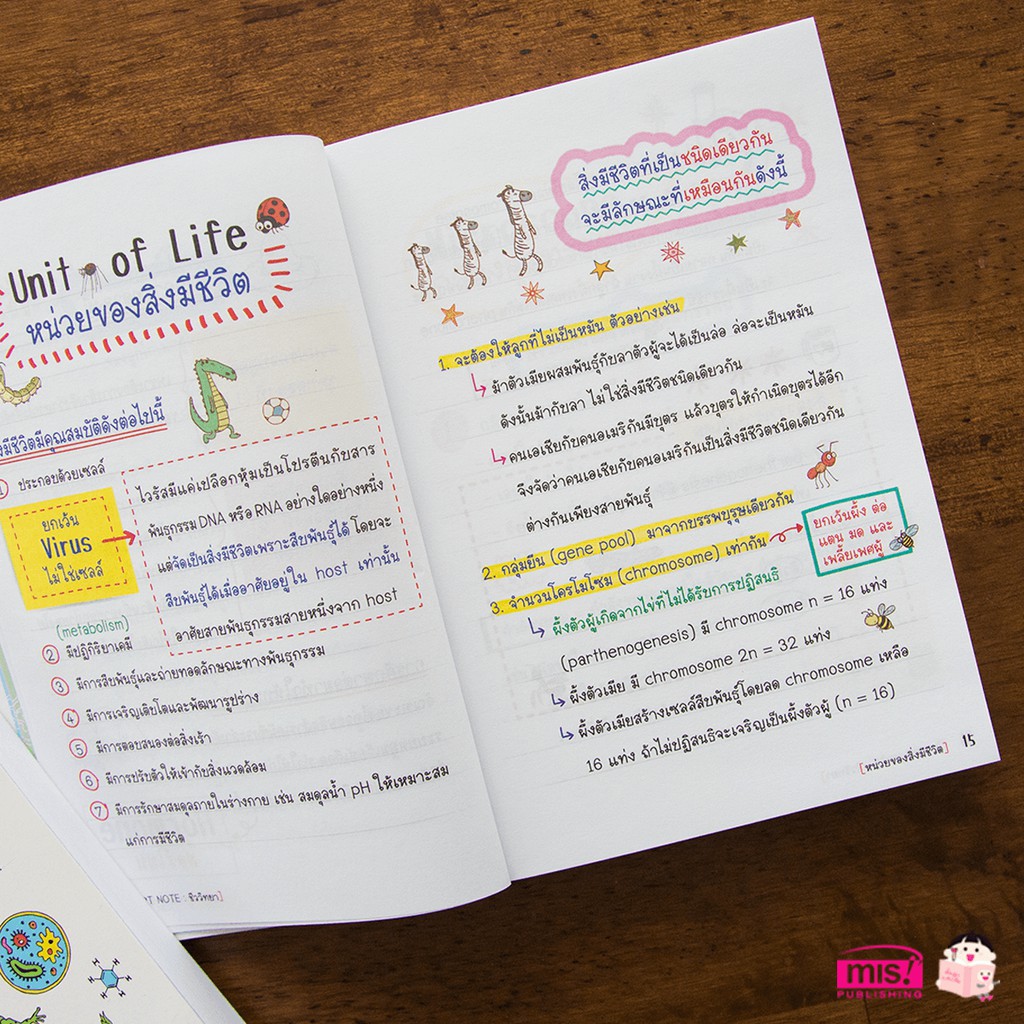 Unit of Life
หน่วยของสิ่งมีชีวิต
มีชีวิตมีคุณสมบัติดังต่อไปนี้
1 ประกอบด้วยเซลล์
ยกเว้น
Virus
ไม่ใช่เซลล์
ไวรัสมีแค่เปลือกหุ้มเป็นโปรตีนกับสาร
พันธุกรรม DNA หรือ RNA อย่างใดอย่างหนึ่ง
แต่จัดเป็นสิ่งมีชีวิตเพราะสืบพันธุ์ได้ โดยจะ
สืบพันธุ์ได้เมื่ออาศัยอยู่ใน host เท่านั้น
อาศัยสายพันธุกรรมสายหนึ่งจาก host
(metabolism)
2 มีปฏิกิริยาเคมี
3 มีการสืบพันธุ์และถ่ายทอดลักษณะทางพันธุกรรม
4 มีการเจริญเติบโตและพัฒนารูปร่าง
5 มีการตอบสนองต่อสิ่งเร้า
6 มีการปรับตัวให้เข้ากับสิ่งแวดล้อม
7 มีการรักษาสมดุลภายในร่างกาย เช่น สมดุลน้ำ pH ให้เหมาะสม
แก่การมีชีวิต
NOTE : ชีววิทยา]
สิ่งมีชีวิตที่เป็นชนิดเดียวกัน
จะมีลักษณะที่เหมือนกันดังนี้
1. จะต้องให้ลูกที่ไม่เป็นหมัน ตัวอย่างเช่น
ม้าตัวเมียผสมพันธุ์กับลาตัวผู้จะได้เป็นล่อ ล่อจะเป็นหมัน
ดังนั้นม้ากับลา ไม่ใช่สิ่งมีชีวิตชนิดเดียวกัน
คนเอเชียกับคนอเมริกันมีบุตร แล้วบุตรให้กำเนิดบุตรได้อีก
จึงจัดว่าคนเอเชียกับคนอเมริกันเป็นสิ่งมีชีวิตชนิดเดียวกัน
ต่างกันเพียงสายพันธุ์
2. กลุ่มยีน (gene pool) มาจากบรรพบุรุษเดียวกัน
3. จำนวนโครโมโซม (chromosome) เท่ากัน
ยกเว้นผึ้ง ต่อ
แตน มด และ
เพลี้ยเพศผู้
ผึ้งตัวผู้เกิดจากไข่ที่ไม่ได้รับการปฏิสนธิ
(parthenogenesis) มี chromosome n = 16 แท่ง
ผึ้งตัวเมีย มี chromosome 2n = 32 แท่ง
ผึ้งตัวเมียสร้างเซลล์สืบพันธุ์โดยลด chromosome เหลือ
16 แท่ง ถ้าไม่ปฏิสนธิจะเจริญเป็นผึ้งตัวผู้ (n = 16)
[หน่วยของสิ่งมีชีวิต] 15
mis!
PUBLISHING